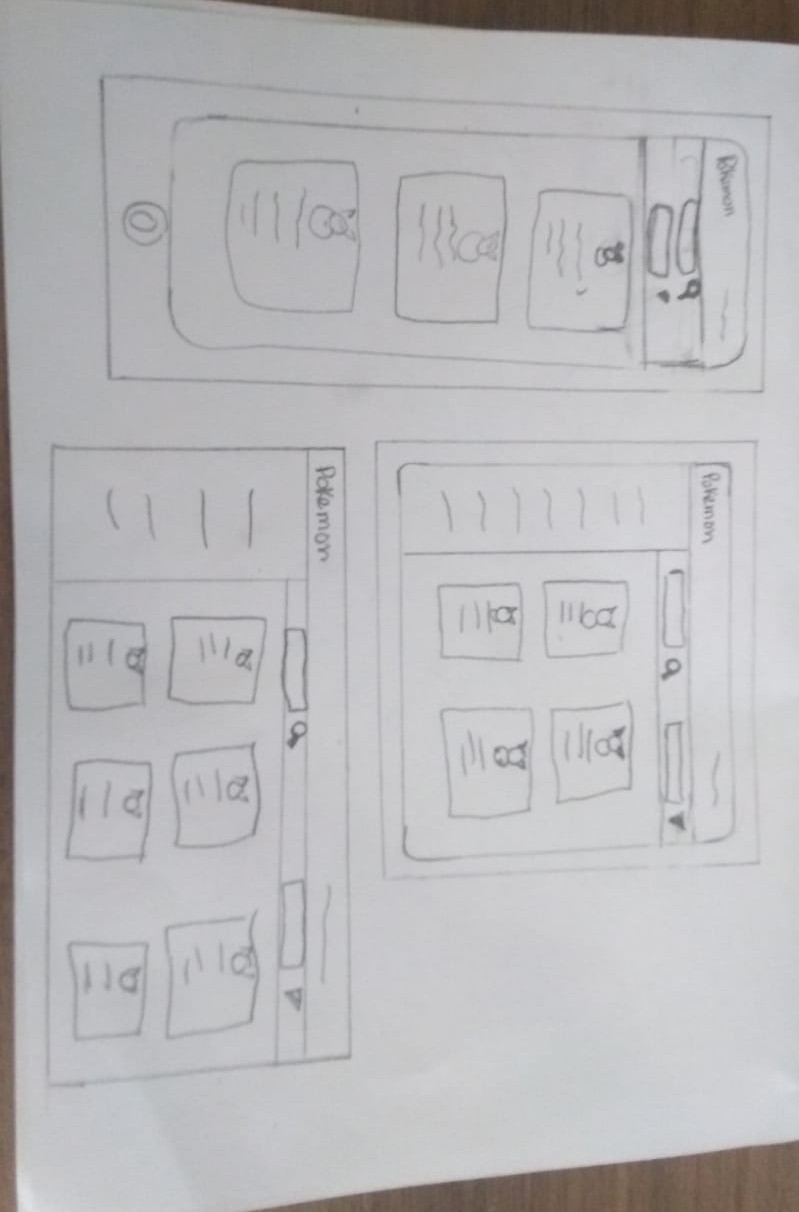 Pokemon
Pokemon
Pokemon